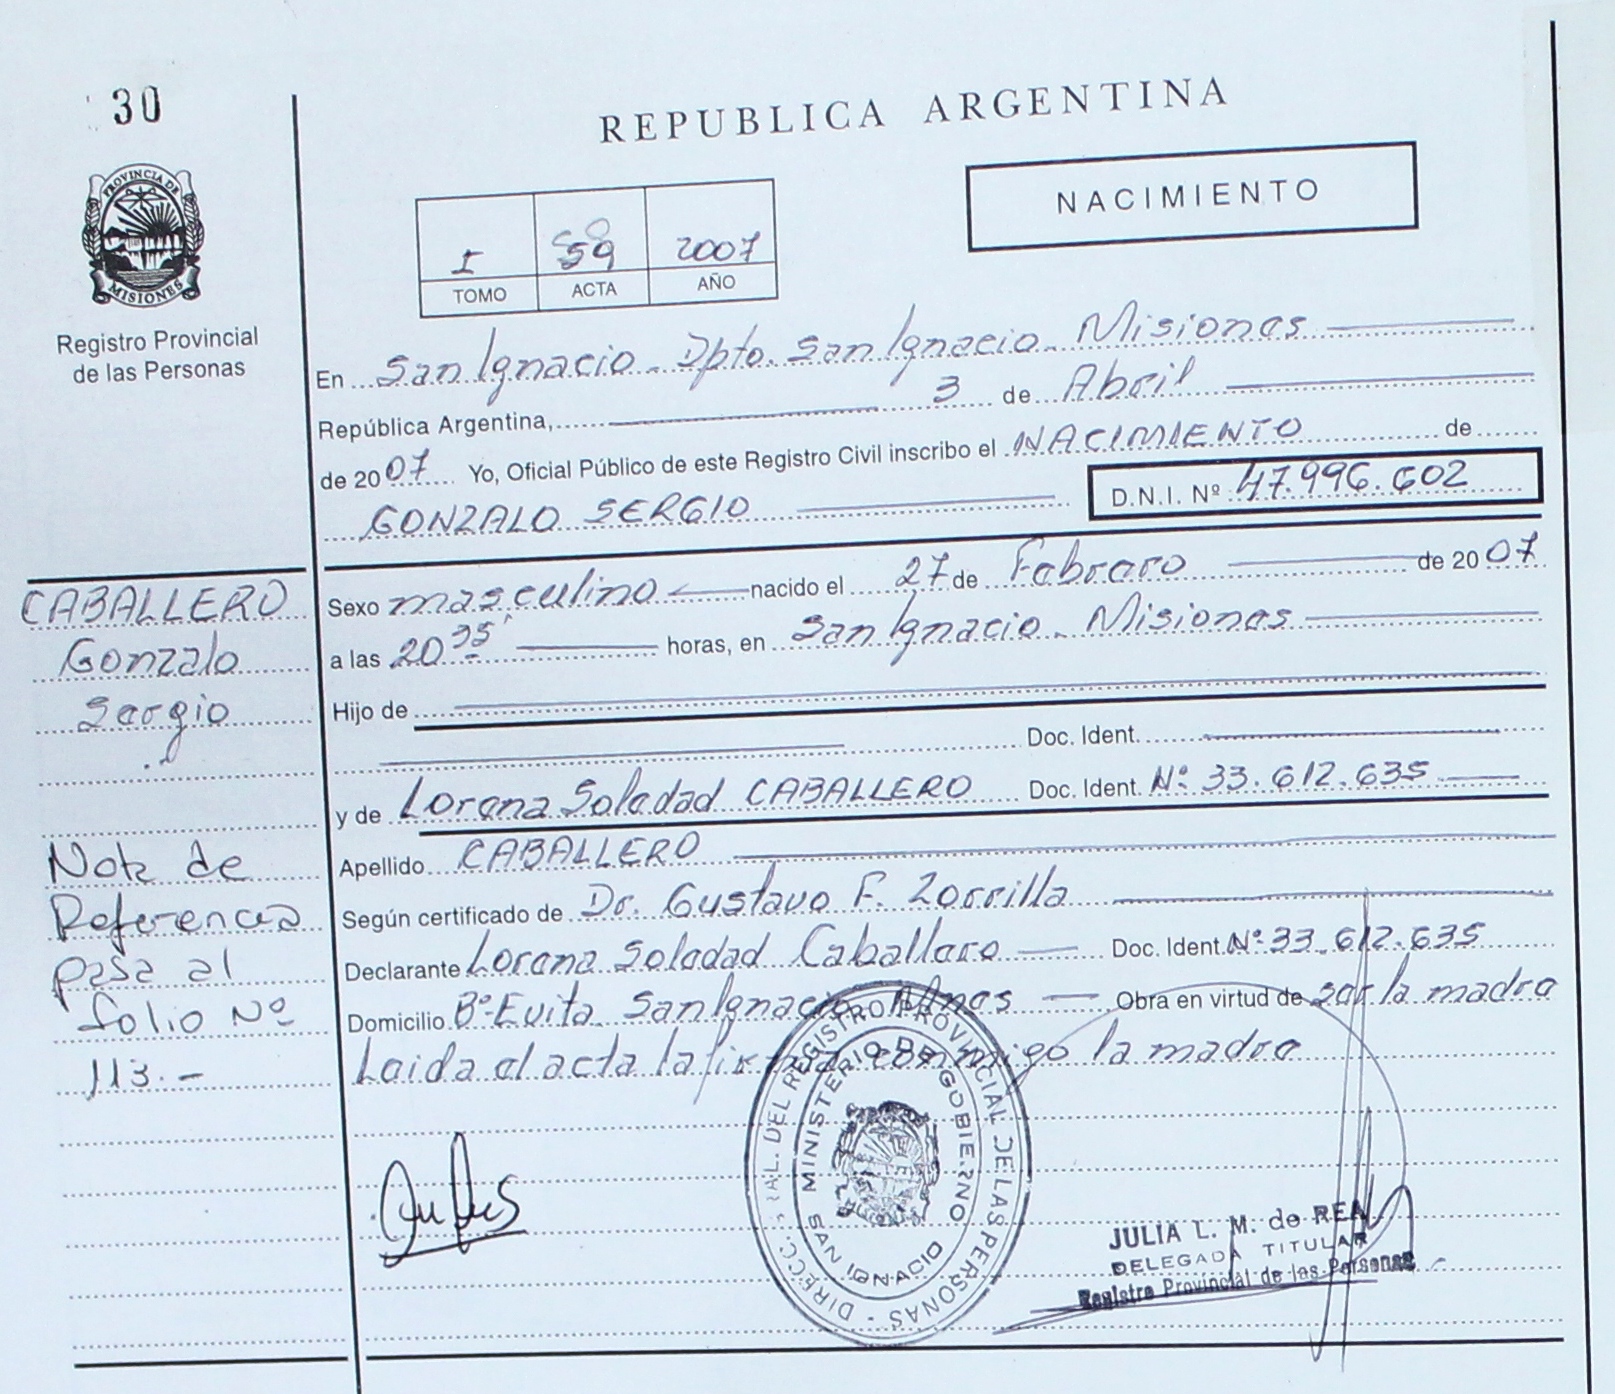 30
REPUBLICA ARGENTINA
NACIMIENTO
PROVINCIA DE
MISIONES
Registro Provincial
de las Personas
I 59 2007
TOMO ACTA AÑO
En San Ignacio - Dpto. San Ignacio - Misiones
República Argentina, 3 de Abril
de 2007 Yo, Oficial Público de este Registro Civil inscribo el NACIMIENTO de
GONZALO SERGIO D.N.I. Nº 47.996.602
CABALLERO
Gonzalo
Sergio
Sexo masculino nacido el 27 de Febrero de 2007
a las 20 35' horas, en San Ignacio - Misiones
Hijo de
Doc. Ident.
y de Lorena Soledad CABALLERO Doc. Ident. Nº 33.612.635
Apellido CABALLERO
Según certificado de Dr. Gustavo F. Zorrilla
Declarante Lorena Soledad Caballero Doc. Ident. Nº 33.612.635
Domicilio Bº Evita San Ignacio Mnes Obra en virtud de ser la madre
Leida el acta la firma conmigo la madre
Nota de
Referencia
pasa al
folio Nº
113.-
DIRECC. GRAL. DEL REGISTRO PROVINCIAL DE LAS PERSONAS
MINISTERIO DE GOBIERNO
SAN IGNACIO
JULIA L. M. de REA
DELEGADA TITULAR
Registro Provincial de las Personas